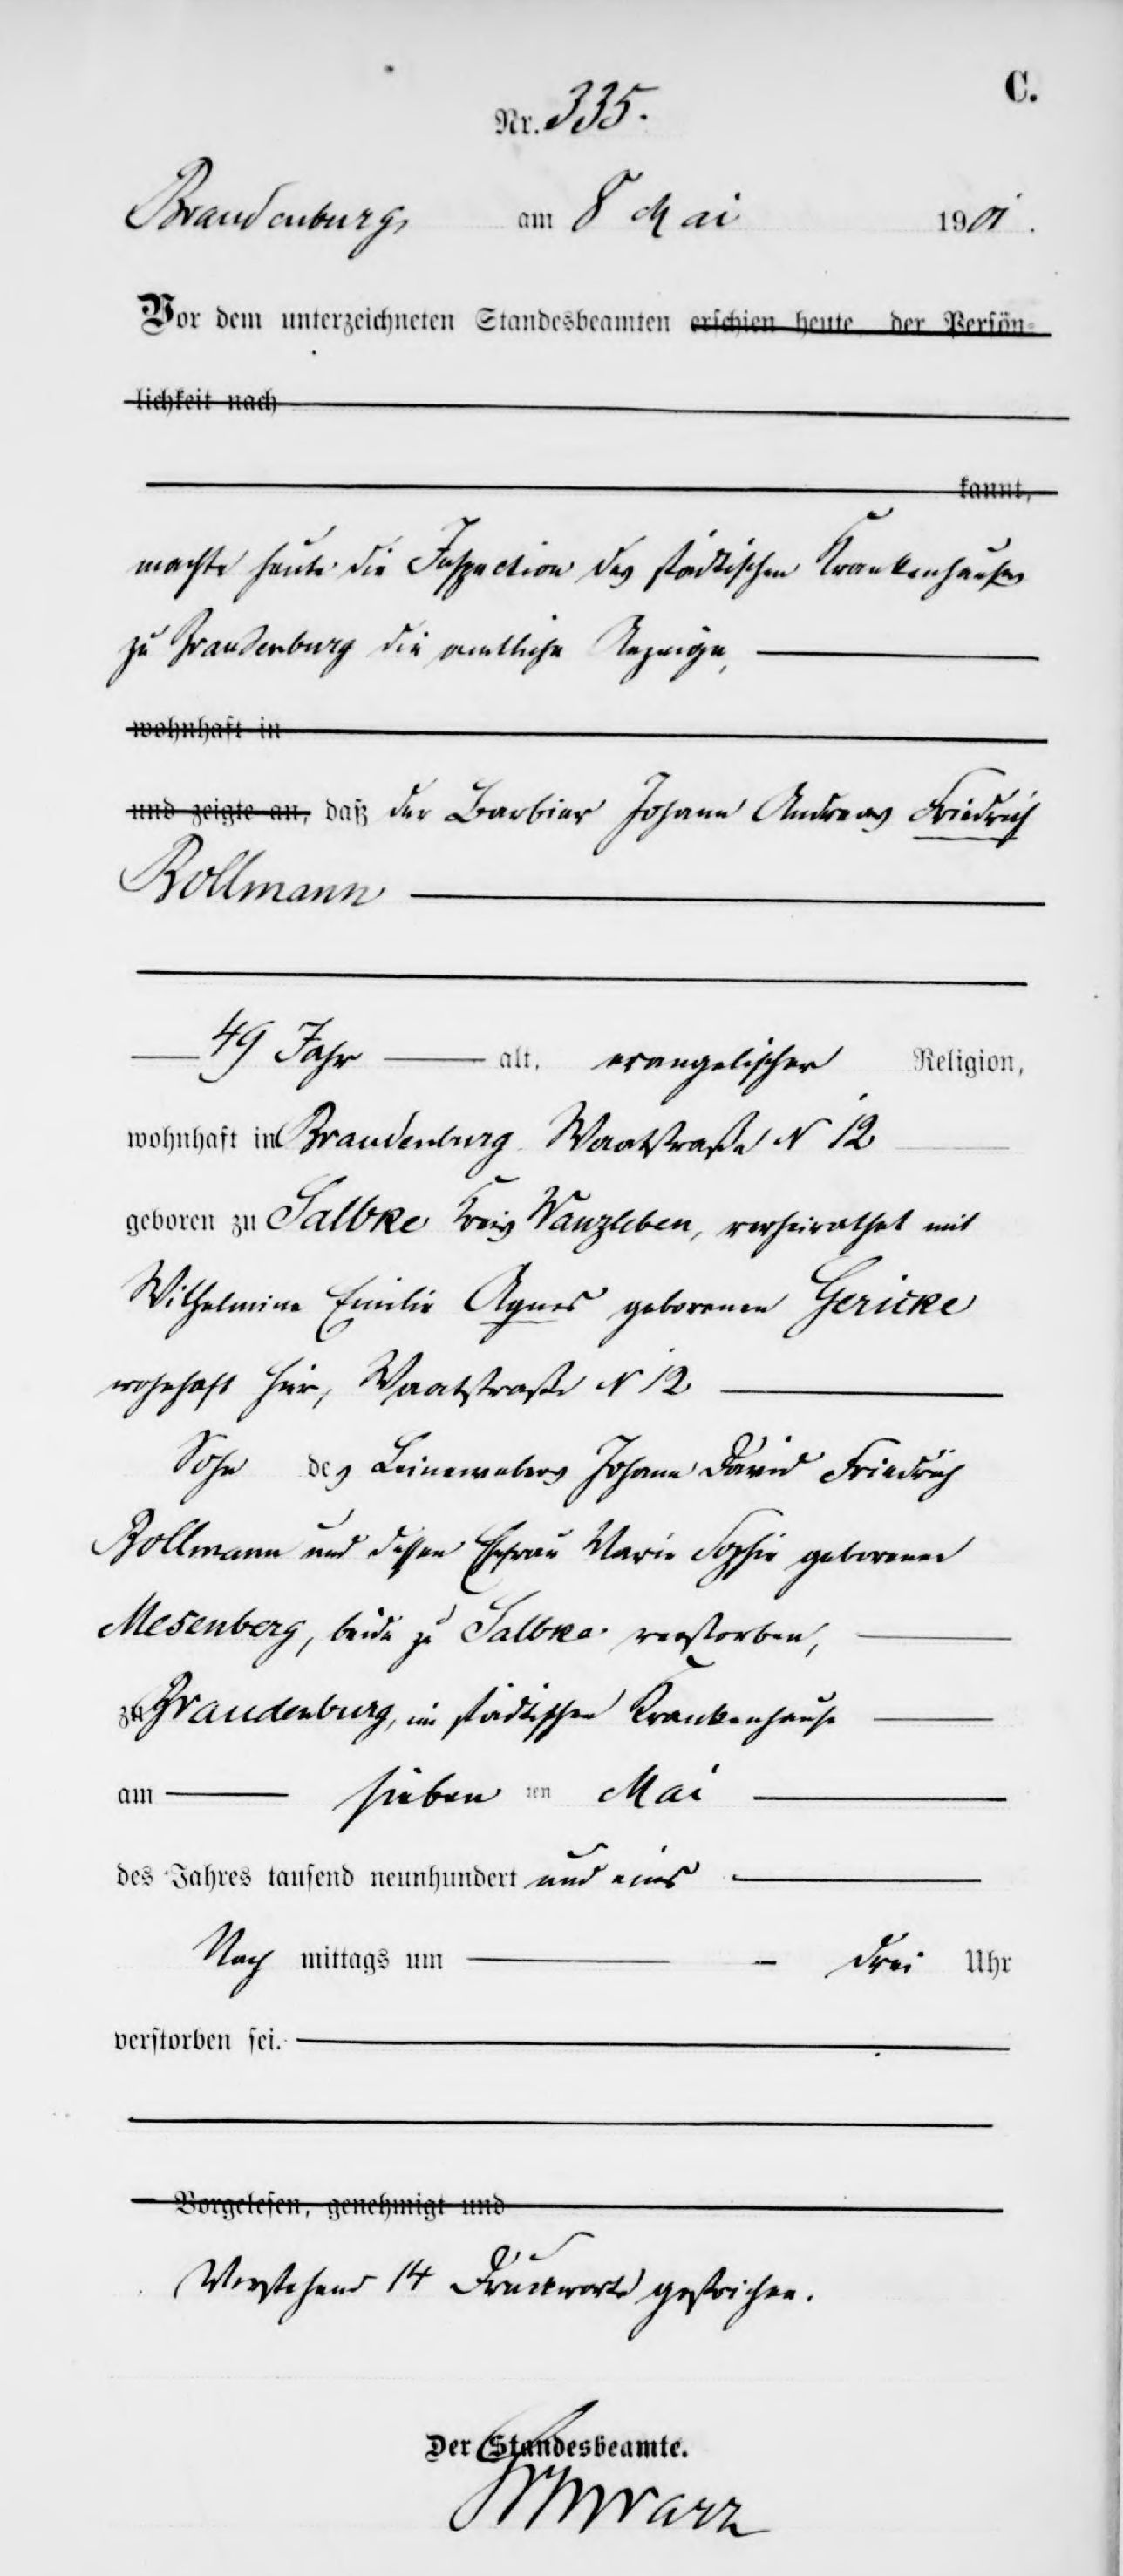 C.
Nr. 335.
Brandenburg, am 8 Mai 1901.
Vor dem unterzeichneten Standesbeamten erschien heute, der Persön-
lichkeit nach
kannt,
machte heute die Inspection des städtischen Krankenhauses
zu Brandenburg die amtliche Anzeige,
wohnhaft in
und zeigte an, daß der Barbier Johann Andreas Friedrich
Bollmann
49 Jahr alt, evangelischer Religion,
wohnhaft in Brandenburg Waatstraße N 12
geboren zu Salbke Kreis Wanzleben, verheirathet mit
Wilhelmine Emilie Agnes geborenen Gericke
wohnhaft hier, Waatstraße N 12
Sohn des Leinewebers Johann David Friedrich
Bollmann und dessen Ehefrau Marie Sophie geborenen
Mesenberg, beide zu Salbke verstorben,
zu Brandenburg, im städtischen Krankenhause
am sieben ten Mai
des Jahres tausend neunhundert und eins
Nach mittags um drei Uhr
verstorben sei.
Vorgelesen, genehmigt und
Vorstehend 14 Druckworte gestrichen.
Der Standesbeamte.
Schwarz